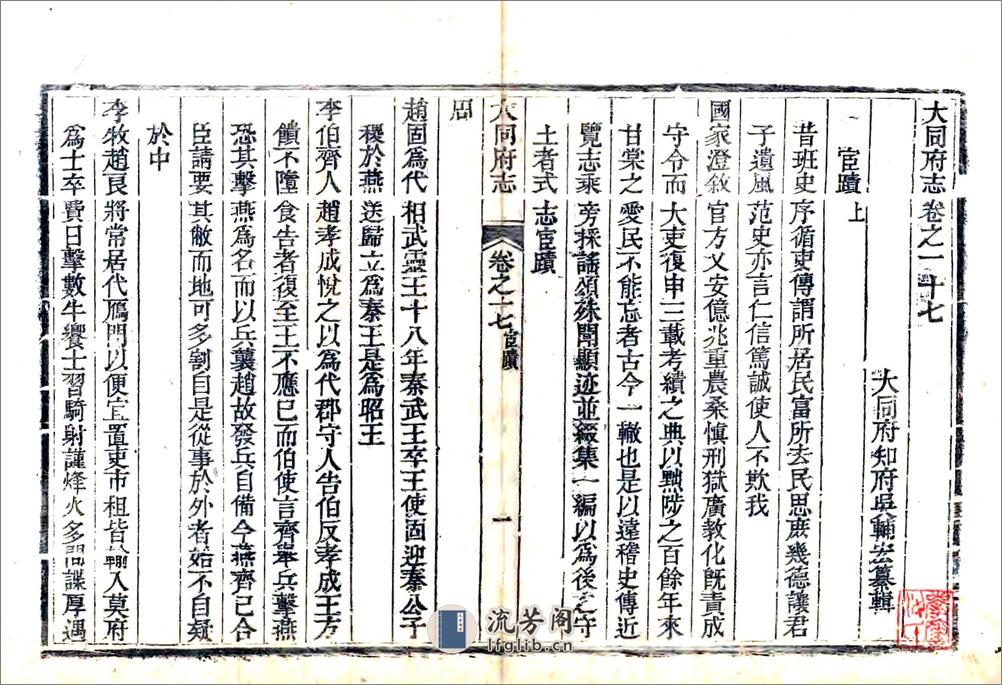 大同府志卷之一十七
大同府知府吳輔宏纂輯
宦蹟上
昔班史序循吏傳謂所居民富所去民思庶幾德讓君
子遺風范史亦言仁信篤誠使人不欺我
國家澄敘官方乂安億兆重農桑慎刑獄廣教化既責成
守令而大吏復申三載考績之典以黜陟之百餘年來
甘棠之愛民不能忘者古今一轍也是以遠稽史傳近
覽志乘旁採謠頌殊聞顯迹並綴集一編以為後之守
土者式志宦蹟
大同府志 卷之十七 宦蹟 一
周
趙固為代相武靈王十八年秦武王卒王使固迎秦公子
稷於燕送歸立為秦王是為昭王
李伯齊人趙孝成悅之以為代郡守人告伯反孝成王方
饋不墮食告者復至王不應已而伯使言齊舉兵擊燕
恐其擊燕為名而以兵襲趙故發兵自備今燕齊已合
臣請要其敝而地可多割自是從事於外者始不自疑
於中
李牧趙良將常居代鴈門以便宜置吏市租皆輸入莫府
為士卒費日擊數牛饗士習騎射謹烽火多間諜厚遇
流芳阁
lfglib.cn